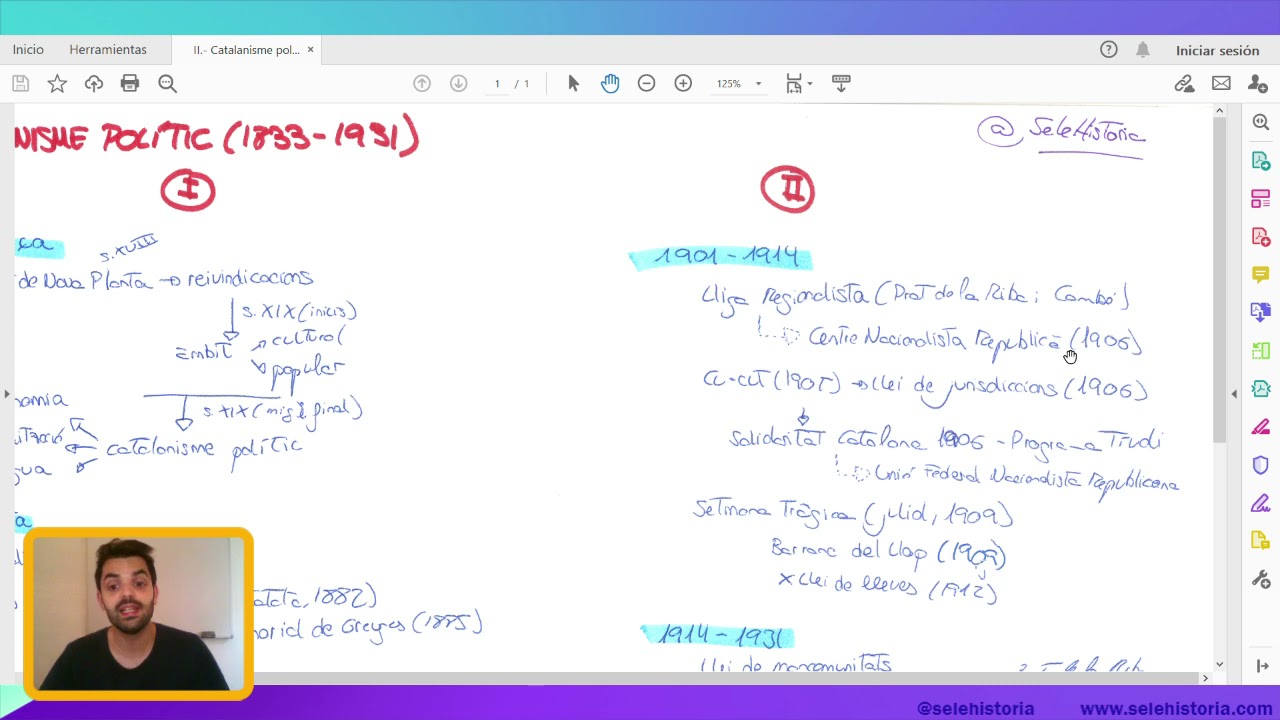 Inicio Herramientas II.- Catalanisme pol... × Iniciar sesión
1 / 1 125%
NISME POLÍTIC (1833-1931)
@SeleHistoria
I
II
ca
s.XVIII
de Nova Planta → reivindicacions
s.XIX (inicis)
àmbit
cultural
popular
s.XIX (mig i final)
nomia
catalanisme polític
1901-1914
Lliga Regionalista (Prat de la Riba i Cambó)
Centre Nacionalista Republicà (1906)
Cu-cut (1905) → Llei de jurisdiccions (1906)
Solidaritat Catalana 1906 - Programa Tívoli
Unió Federal Nacionalista Republicana
Setmana Tràgica (juliol, 1909)
Barranc del Llop (1909)
x Llei de lleves (1912)
1914-1931
Llei de mancomunitats
1882)
morial de Greuges (1885)
@selehistoria www.selehistoria.com